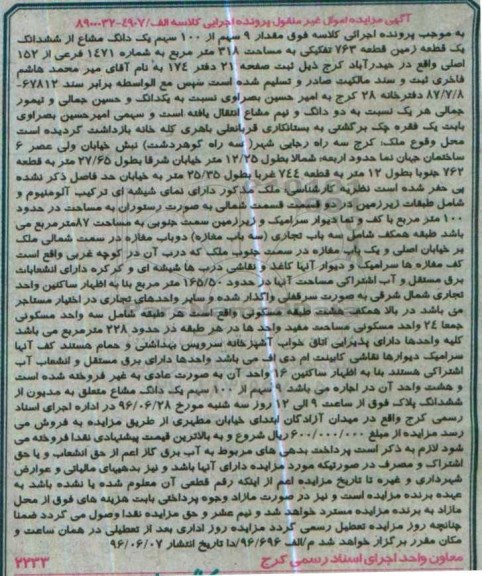 آگهی مزایده اموال غیر منقول پرونده اجرایی کلاسه الف/۸۹۰۰۰۳۲۰۴۹۰۷
به موجب پرونده اجرائی کلاسه فوق مقدار ۹ سهم از ۱۰۰ سهم یک دانگ مشاع از ششدانگ
یک قطعه زمین قطعه ۷۶۳ تفکیکی به مساحت ۳۱۸ متر مربع به شماره ۱۴۷۱ فرعی از ۱۵۲
اصلی واقع در حیدرآباد کرج ذیل ثبت صفحه ۲۱ دفتر ۱۷۴ به نام آقای میر محمد هاشم
فاخری ثبت و سند مالکیت صادر و تسلیم شده است سپس مع الواسطه برابر سند ۶۷۸۱۲-
۸۷/۷/۸ دفترخانه ۲۸ کرج به امیر حسین بصراوی نسبت به یکدانگ و حسین جمالی و تیمور
جمالی هر یک نسبت به دو دانگ و نیم مشاع انتقال یافته است و سهمی امیرحسین بصراوی
بابت یک فقره چک برگشتی به بستانکاری قربانعلی باهری کله خانه بازداشت گردیده است
محل وقوع ملک: کرج سه راه رجایی شهر(سه راه گوهردشت) نبش خیابان ولی عصر ۶
ساختمان جهان نما حدود اربعه: شمالا بطول ۱۲/۲۵ متر خیابان شرقا بطول ۲۷/۶۵ متر به قطعه
۷۶۲ جنوبا بطول ۱۲ متر به قطعه ۷۴۴ غربا بطول ۲۵/۳۵ متر به خیابان حد فاصل ذکر نشده
پی حفر شده است نظریه کارشناسی: ملک مذکور دارای نمای شیشه ای ترکیب آلومنیوم و
شامل طبقات زیرزمین در دو قسمت قسمت شمالی به صورت رستوران به مساحت در حدود
۱۰۰ متر مربع با کف و نما دیوار سرامیک و زیرزمین سمت جنوبی به مساحت ۸۷مترمربع می
باشد طبقه همکف شامل سه باب تجاری (سه باب مغازه) دوباب مغازه در سمت شمالی ملک
بر خیابان اصلی و یک باب مغازه در سمت جنوب ملک که درب آن در کوچه غربی واقع است
کف مغازه ها سرامیک و دیوار آنها کاغذ و نقاشی درب ها شیشه ای و کرکره دارای انشعابات
برق مستقل و آب اشتراکی مساحت آنها در حدود ۱۶۵/۵۰ متر مربع بنا به اظهار ساکنین واحد
تجاری شمال شرقی به صورت سرقفلی واگذار شده و سایر واحدهای تجاری در اختیار مستاجر
می باشد در بالا همکف هشت طبقه مسکونی واقع است هر طبقه شامل سه واحد مسکونی
جمعا ۲۴ واحد مسکونی مساحت مفید واحد ها در هر طبقه در حدود ۲۲۸ مترمربع می باشد
کلیه واحدها دارای پذیرایی اتاق خواب آشپزخانه سرویس بهداشتی و حمام هستند کف آنها
سرامیک دیوارها نقاشی کابینت ام دی اف می باشد واحدها دارای برق مستقل و انشعاب آب
اشتراکی هستند بنا به اظهار ساکنین ۱۶ واحد آن به صورت عادی به غیر فروخته شده است
و هشت واحد آن در اجاره می باشد ۹ سهم از ۱۰۰ سهم یک دانگ مشاع متعلق به مدیون از
ششدانگ پلاک فوق از ساعت ۹ الی ۱۲ روز سه شنبه مورخ ۹۶/۰۶/۲۸ در اداره اجرای اسناد
رسمی کرج واقع در میدان آزادگان ابتدای خیابان مطهری از طریق مزایده به فروش می
رسد مزایده از مبلغ ۶۰۰/۰۰۰/۰۰۰ ریال شروع و به بالاترین قیمت پیشنهادی نقدا فروخته می
شود لازم به ذکر است پرداخت بدهی های مربوط به آب برق گاز اعم از حق انشعاب و یا حق
اشتراک و مصرف در صورتیکه مورد مزایده دارای آنها باشد و نیز بدهیهای مالیاتی و عوارض
شهرداری و غیره تا تاریخ مزایده اعم از اینکه رقم قطعی آن معلوم شده یا نشده باشد به
عهده برنده مزایده است و نیز در صورت مازاد وجوه پرداختی بابت هزینه های فوق از محل
مازاد به برنده مزایده مسترد خواهد شد و نیم عشر و حق مزایده نقدا وصول می گردد ضمنا
چنانچه روز مزایده تعطیل رسمی گردد مزایده روز اداری بعد از تعطیلی در همان ساعت و
مکان مقرر برگزار خواهد شد م/الف ۹۶/۶۹۶/دا تاریخ انتشار ۹۶/۰۶/۰۷
معاون واحد اجرای اسناد رسمی کرج ۲۲۳۳